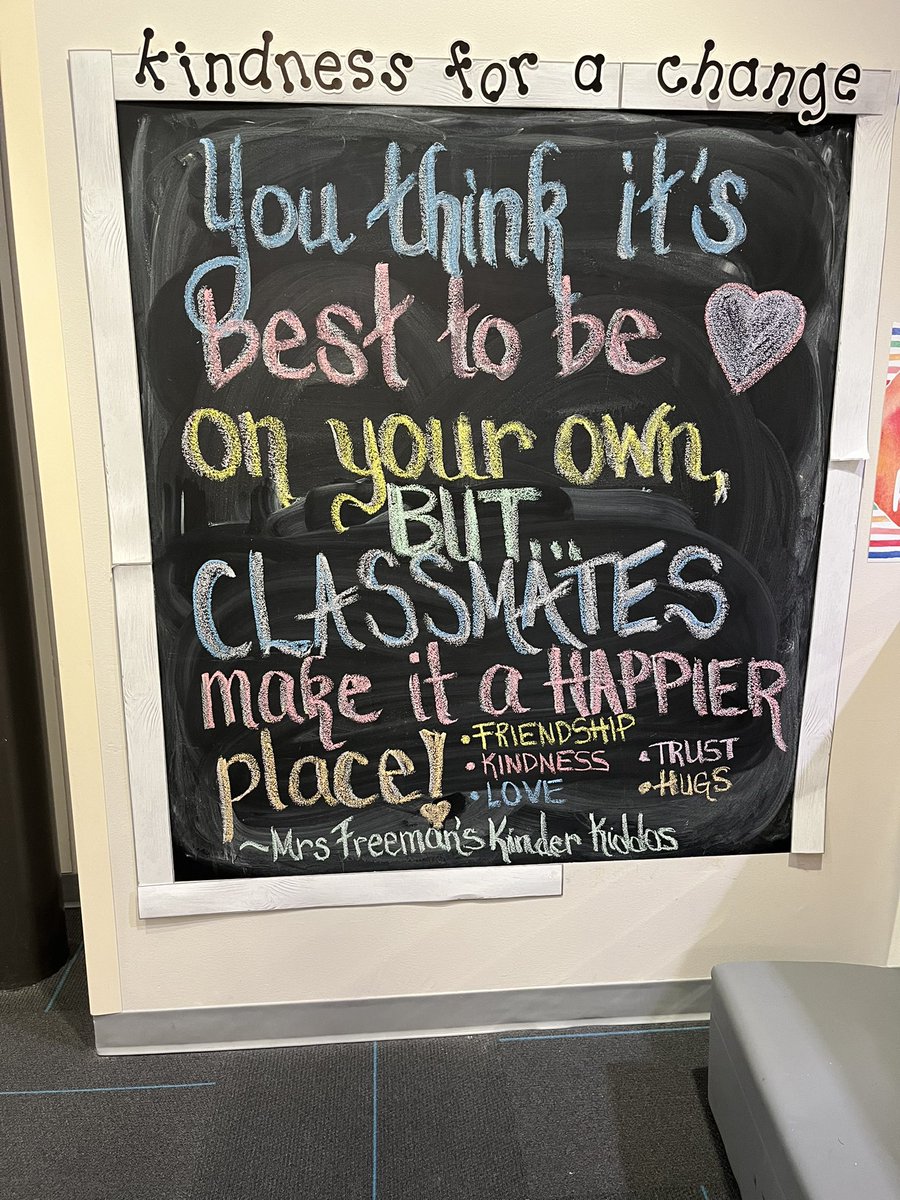 kindness for a change
You think it's
best to be
on your own,
BUT...
CLASSMATES
make it a HAPPIER
place!
• FRIENDSHIP
• KINDNESS
• LOVE
• TRUST
• HUGS
~Mrs Freeman's Kinder Kiddos